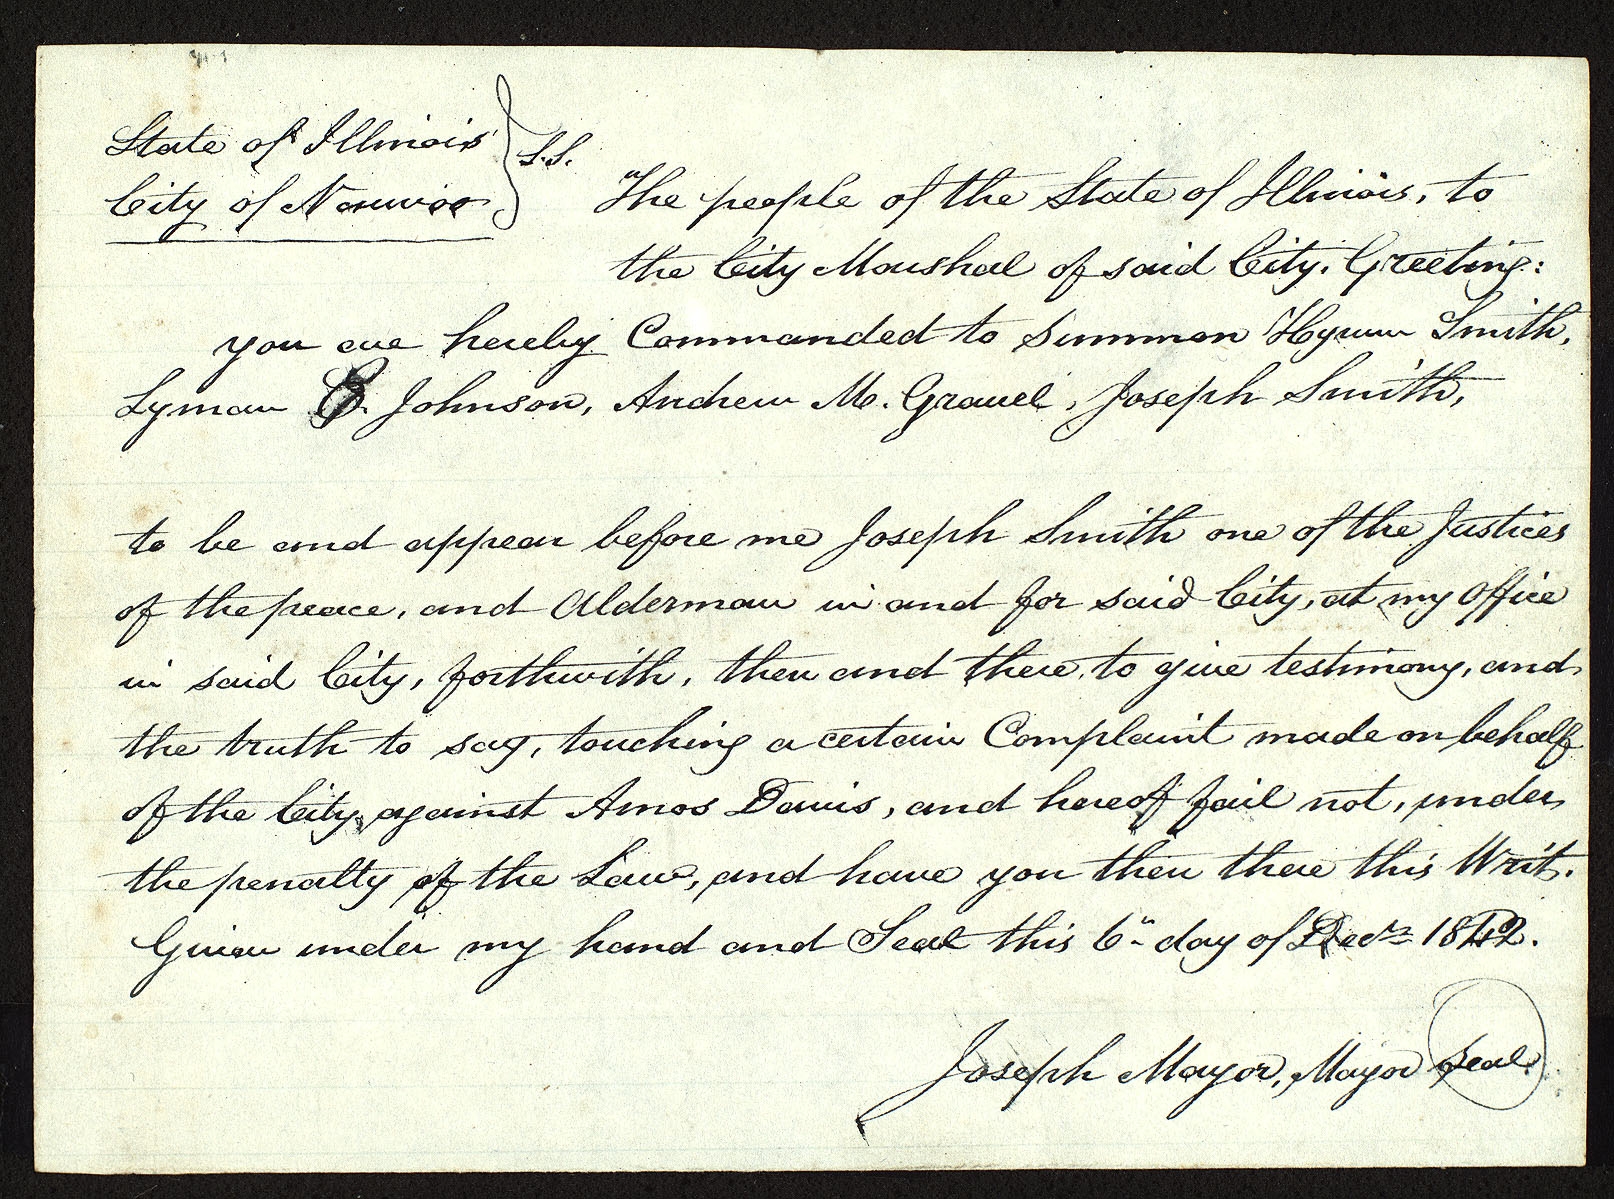 State of Illinois } S.S.
City of Nauvoo
"The people of the State of Illinois, to
the City Marshal of said City. Greeting:
you are hereby Commanded to Summon Hyrum Smith,
Lyman Johnson, Andrew M. Gravel, Joseph Smith,
to be and appear before me Joseph Smith one of the Justices
of the peace, and Alderman in and for said City, at my office
in said City, forthwith, then and there, to give testimony, and
the truth to say, touching a certain Complaint made on behalf
of the City, against Amos Davis, and hereof fail not, under
the penalty of the Law, and have you then there this Writ.
Given under my hand and Seal this 6" day of Decr 1842.
Joseph Mayor, Mayor Seal